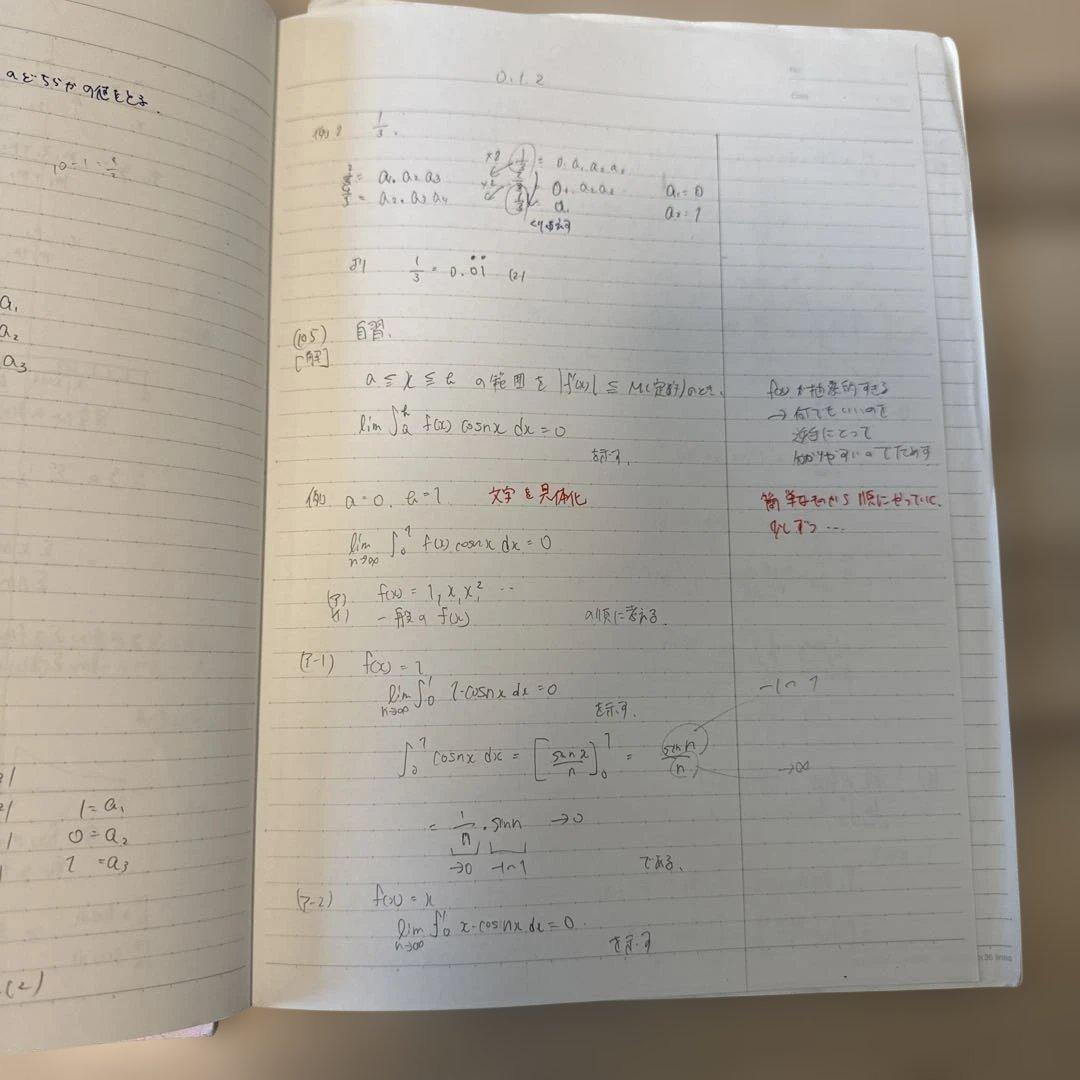 aどちらかの値をとる.
a₁
a₂
a₃
1 = a₁
0 = a₂
1 = a₃
(2)
0, 1, 2
例2 1/3.
2/3 = a₁. a₂ a₃
4/3 = a₂. a₃ a₄
×2 1/3 = 0. a₁ a₂ a₃
×2 2/3 0. a₂ a₃ a₁ = 0
1/3 a₁ a₂ = 1
くり返す
より 1/3 = 0.0̇1̇ (2)
(105) 自習.
[解]
a ≦ x ≦ b の範囲で |f'(x)| ≦ M(定数)のとき,
lim ∫ₐᵇ f(x) cosnx dx = 0
を示す.
f(x)が抽象的すぎる
→ 何でもいいので
逆手にとって
分かりやすいのでためす
例 a = 0, b = 1 文字を具体化
簡単なものから順にやっていく.
少しずつ …
lim n→∞ ∫₀¹ f(x) cosnx dx = 0
(ア) f(x) = 1, x, x², …
(イ) 一般の f(x) の順に考える.
(ア-1) f(x) = 1
lim n→∞ ∫₀¹ 1·cosnx dx = 0
を示す.
-1〜1
∫₀¹ cosnx dx = [sinnx/n]₀¹ = sinn/n
→∞
= 1/n · sinn → 0
→0 -1〜1 である.
(ア-2) f(x) = x
lim n→∞ ∫₀¹ x·cosnx dx = 0.
を示す